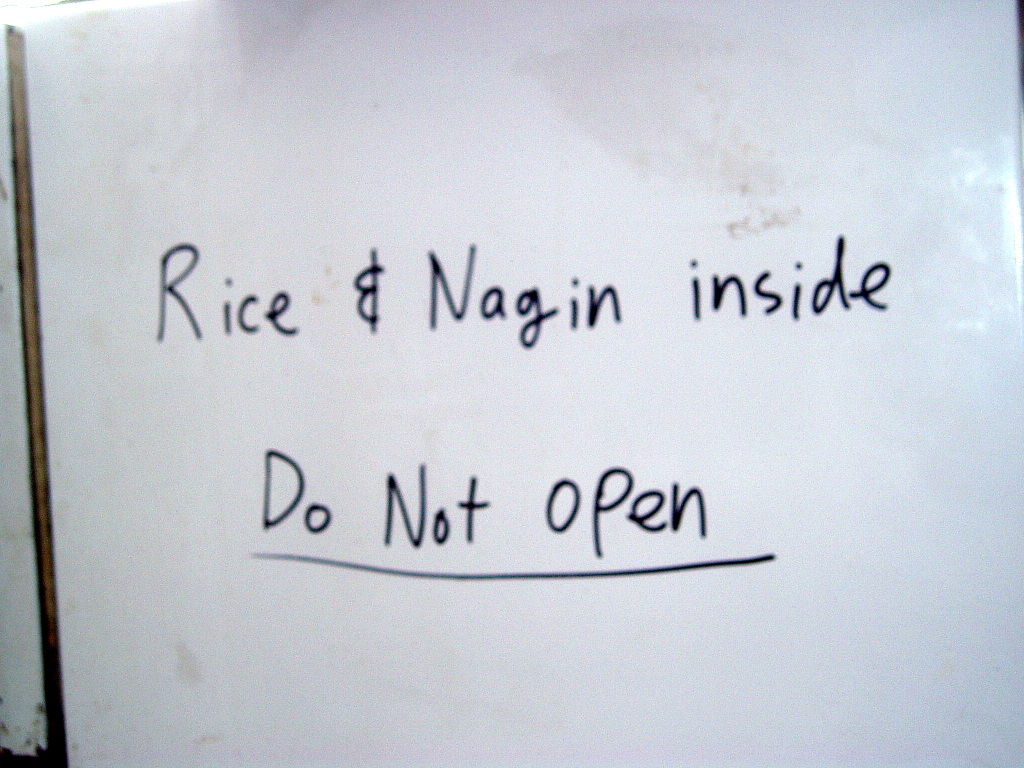 Rice & Nagin inside
Do Not Open